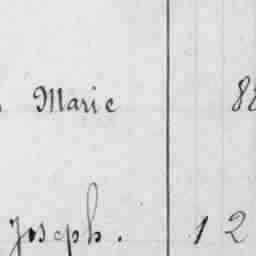 Marie
Joseph. 12